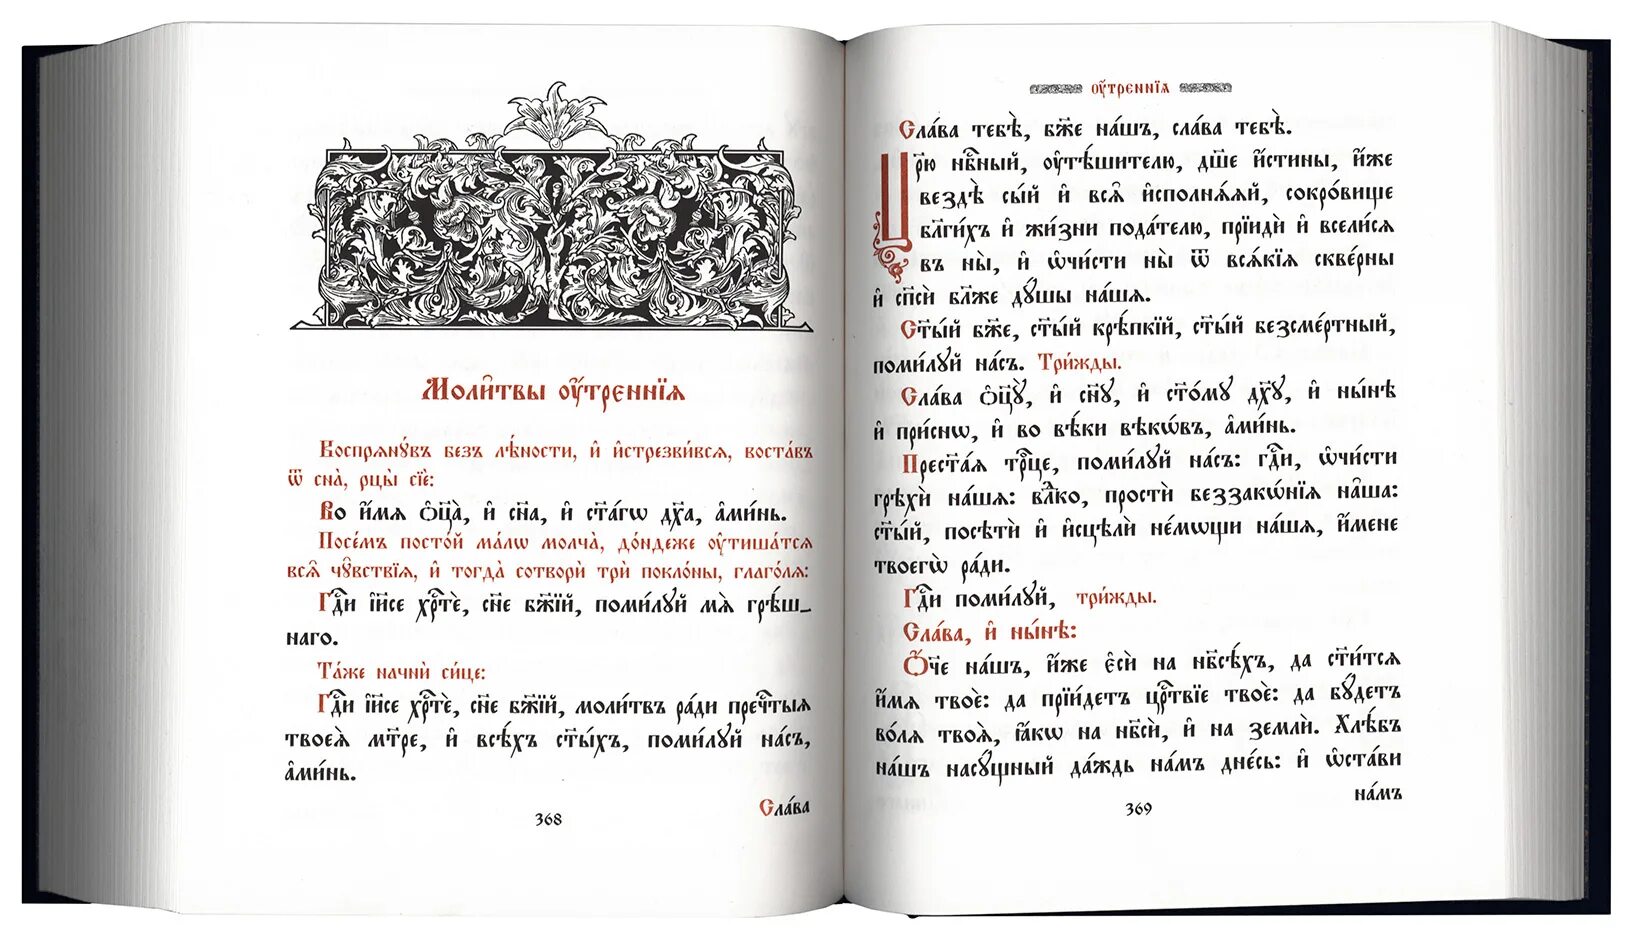 Моли̑твы ᲂу҆́треннїѧ
Воспрѧнꙋ́въ без̾ лѣ́ности, и҆ и҆стрезви́всѧ, воста́въ
ѿ сна̀, рцы̀ сїѐ:
Во и҆́мѧ ѻ҆ц҃а̀, и҆ сн҃а, и҆ ст҃а́гѡ дх҃а, а҆ми́нь.
Посе́мъ посто́й ма́лѡ молча̀, до́ндеже ᲂу҆тиша́тсѧ
всѧ̑ чꙋ̑вствїѧ, и҆ тогда̀ сотворѝ трѝ покло́ны, глаго́лѧ:
Гдⷭ҇и і҆и҃се хрⷭ҇тѐ, сн҃е бж҃їй, поми́лꙋй мѧ̀ грѣ́ш_
наго.
Та́же начнѝ си́це:
Гдⷭ҇и і҆и҃се хрⷭ҇тѐ, сн҃е бж҃їй, моли́твъ ра́ди пречⷭ҇тыѧ
твоеѧ̀ мт҃ре, и҆ всѣ́хъ ст҃ы́хъ, поми́лꙋй на́съ,
а҆ми́нь.
Сла́ва
368
ᲂу҆́треннїѧ
Сла́ва тебѣ̀, бж҃е на́шъ, сла́ва тебѣ̀.
Цр҃ю̀ нбⷭ҇ный, ᲂу҆тѣ́шителю, дш҃е и҆́стины, и҆́же
вездѣ̀ сы́й и҆ всѧ̑ и҆сполнѧ́ѧй, сокро́вище
бл҃ги́хъ и҆ жи́зни пода́телю, прїидѝ и҆ всели́сѧ
въ ны̀, и҆ ѡ҆чи́сти ны̀ ѿ всѧ́кїѧ скве́рны
и҆ сп҃сѝ бл҃же дꙋ́шы на́шѧ.
Ст҃ы́й бж҃е, ст҃ы́й крѣ́пкїй, ст҃ы́й безсме́ртный,
поми́лꙋй на́съ. Три́жды.
Сла́ва ѻ҆ц҃ꙋ̀, и҆ сн҃ꙋ, и҆ ст҃о́мꙋ дх҃ꙋ, и҆ ны́нѣ
и҆ при́снѡ, и҆ во вѣ́ки вѣкѡ́въ, а҆ми́нь.
Прест҃а́ѧ трⷪ҇це, поми́лꙋй на́съ: гдⷭ҇и, ѡ҆чи́сти
грѣхѝ на́шѧ: влⷣко, простѝ беззакѡ́нїѧ на̑ша:
ст҃ы́й, посѣтѝ и҆ и҆сцѣлѝ не́мѡщи на́шѧ, и҆́мене
твоегѡ̀ ра́ди.
Гдⷭ҇и поми́лꙋй, три́жды.
Сла́ва, и҆ ны́нѣ:
Ѻ҆́ч҃е на́шъ, и҆́же є҆сѝ на нб҃сѣ́хъ, да ст҃и́тсѧ
и҆́мѧ твоѐ: да прїи́детъ црⷭ҇твїе твоѐ: да бꙋ́детъ
во́лѧ твоѧ̀, ꙗ҆́кѡ на нб҃сѝ, и҆ на землѝ. Хлѣ́бъ
на́шъ насꙋ́щный да́ждь на́мъ дне́сь: и҆ ѡ҆ста́ви
на́мъ
369